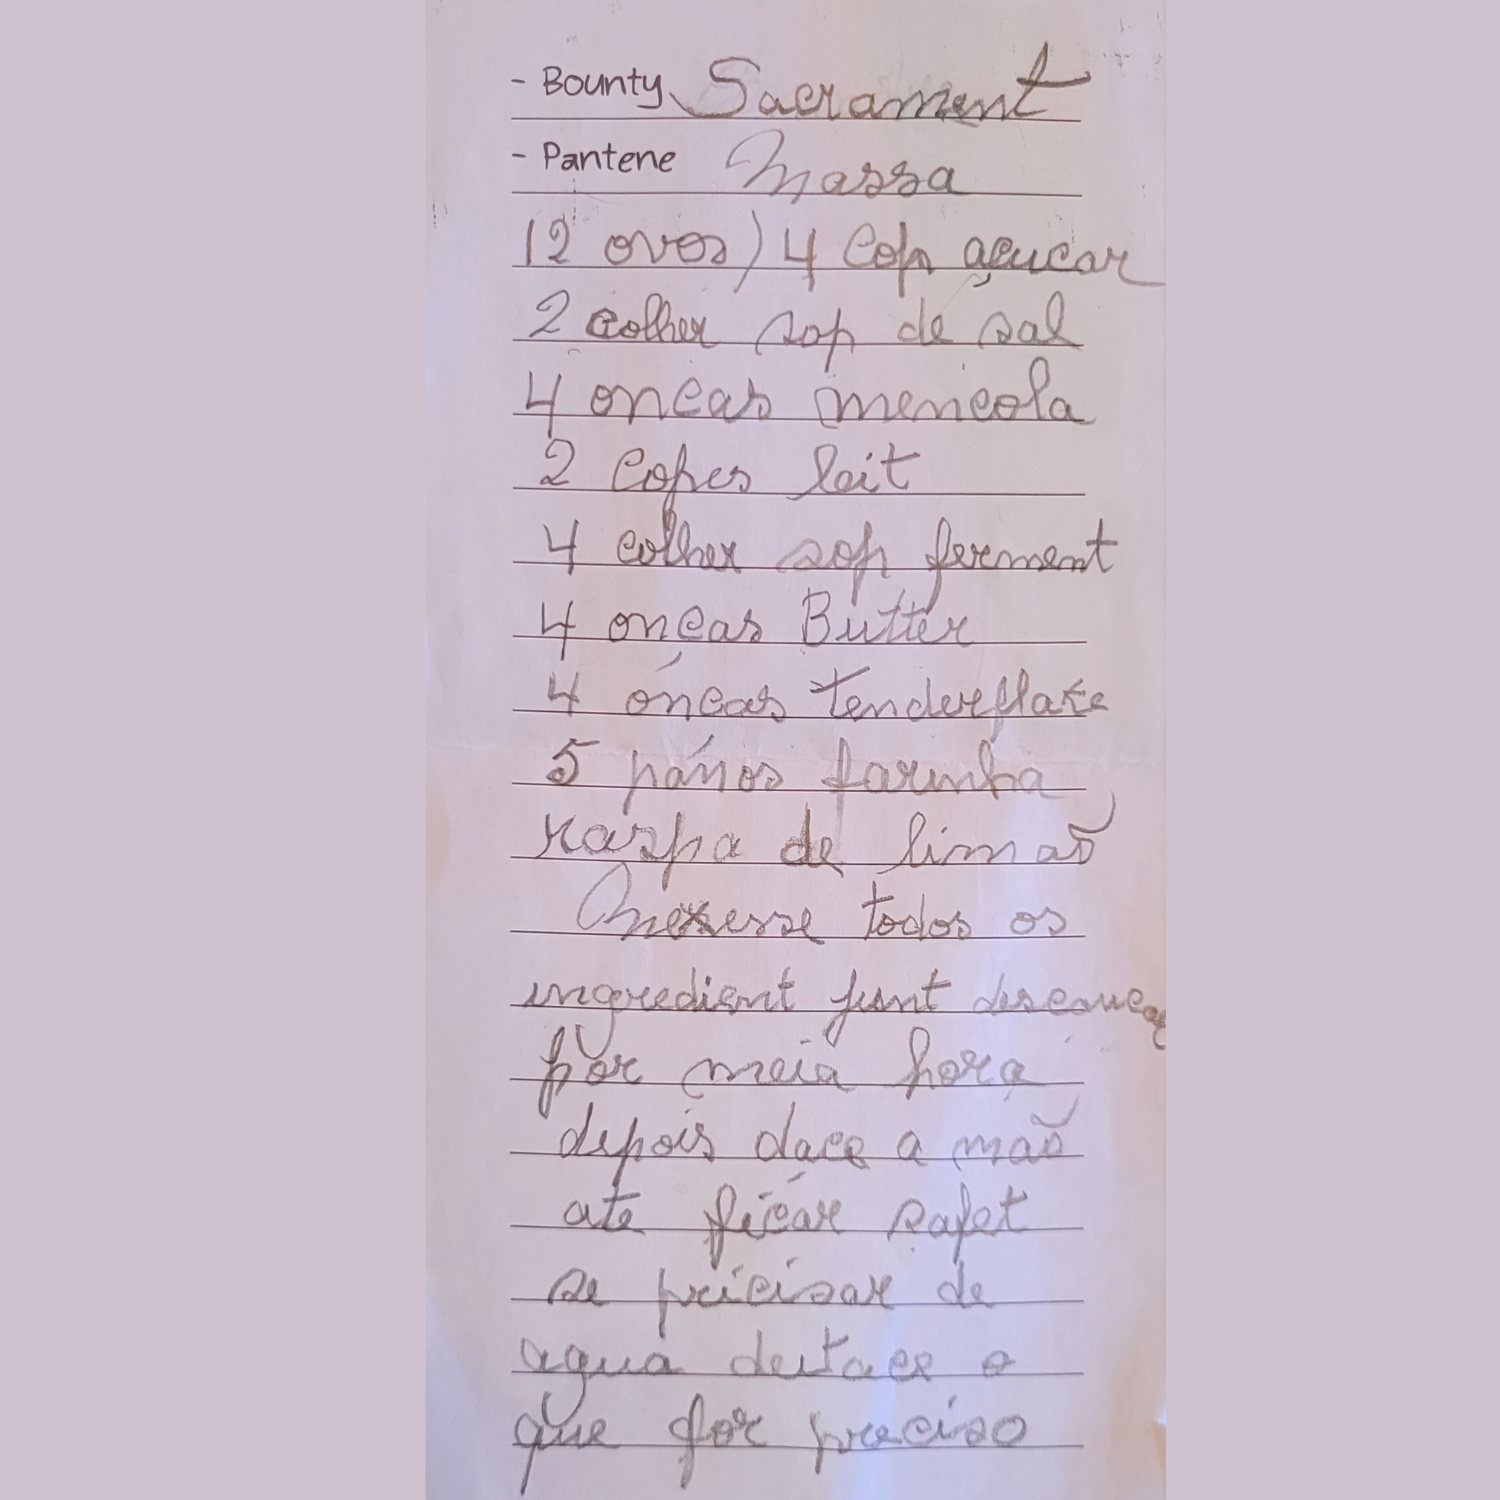 - Bounty Sacrament
- Pantene Massa
12 ovos) 4 Cop açucar
2 colher sop de sal
4 oncas meneola
2 Copes leit
4 colher sop ferment
4 oncas Butter
4 óncas tenderflake
5 pános farinha
raspa de limaõ
Mexesse todos os
ingredient junt
por meia hora
depois dace a maõ
ate ficár safet
se pricisar de
agua deitace o
que for preciso